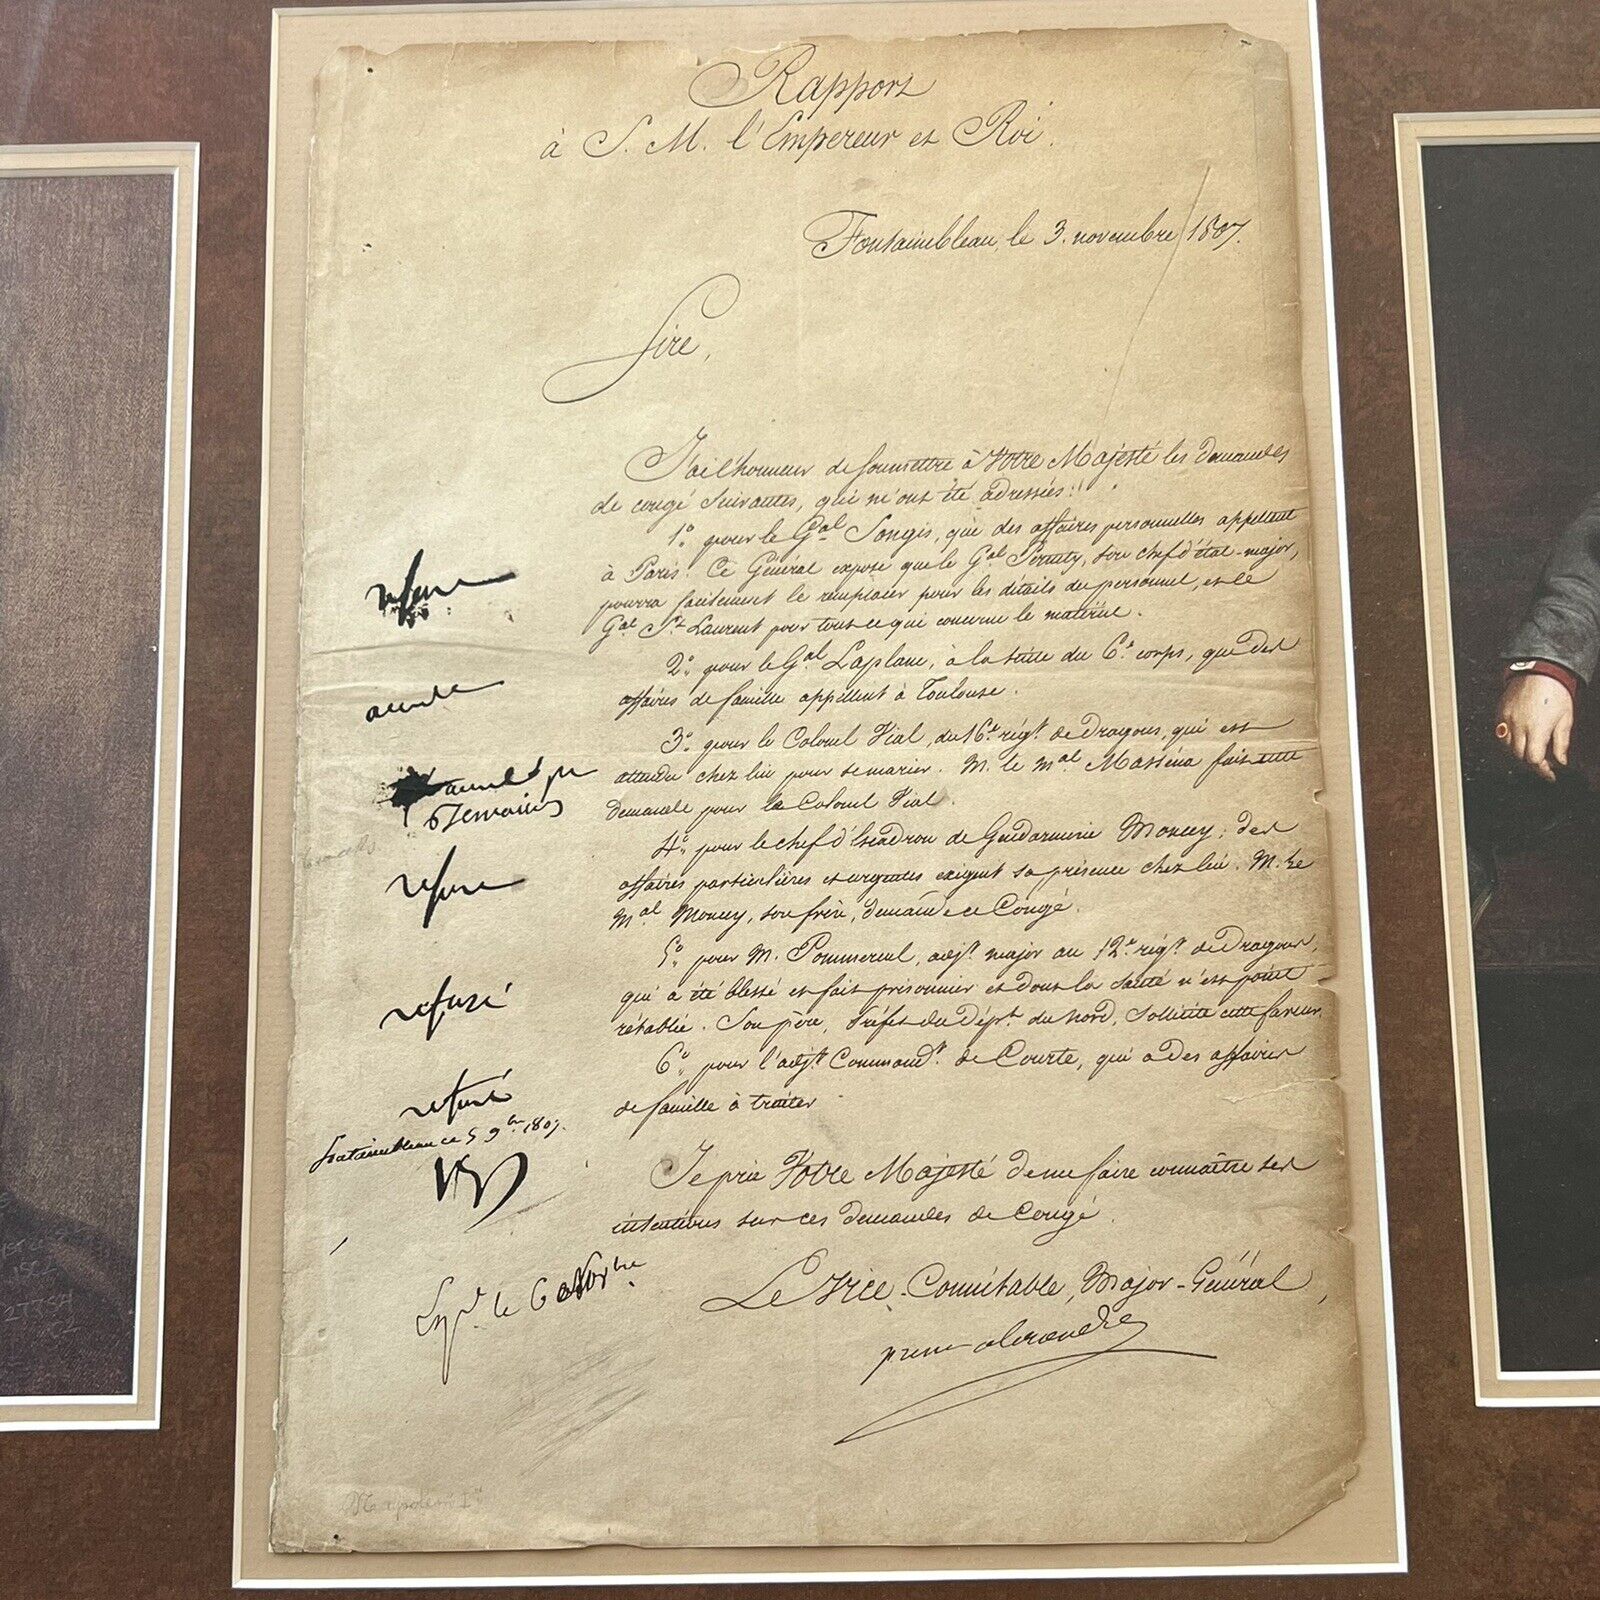 Rapport
à S. M. l'Empereur et Roi.
Fontainebleau, le 3. novembre 1807.
Sire,
J'ai l'honneur de soumettre à Votre Majesté les demandes
de congé suivantes, qui m'ont été adressées:
1.° pour le G.al Songis, que des affaires personnelles appellent
à Paris. Ce Général expose que le G.al Pernety, son chef d'état-major,
pourra facilement le remplacer pour les détails du personnel, et le
G.al S.t Laurent pour tout ce qui concerne le matériel.
refusé
2.° pour le G.al Laplane, à la suite du 6.e corps, que des
affaires de famille appellent à Toulouse.
accordé
3.° pour le Colonel Vial, du 16.e rég.t de Dragons, qui est
attendu chez lui pour se marier. M. le M.al Masséna fait cette
demande pour le Colonel Vial.
accordé pr
6 semaines
4.° pour le chef d'Escadron de Gendarmerie Moncey; des
affaires particulières et urgentes exigent sa présence chez lui. M. le
M.al Moncey, son frère, demande ce Congé.
refusé
5.° pour M. Pommereul, adj.t major au 12.e rég.t de Dragons,
qui a été blessé et fait prisonnier et dont la santé n'est point
rétablie. Son père, Préfet du Dép.t du Nord, sollicite cette faveur.
refusé
6.° pour l'adj.t Command.t de Courte, qui a des affaires
de famille à traiter.
refusé
Fontainebleau ce 5 9bre 1807.
Je prie Votre Majesté de me faire connaître ses
intentions sur ces demandes de Congé.
Le Vice-Connétable, Major-Général,
prince alexandre
le 6 Novbre
Napoléon Ier